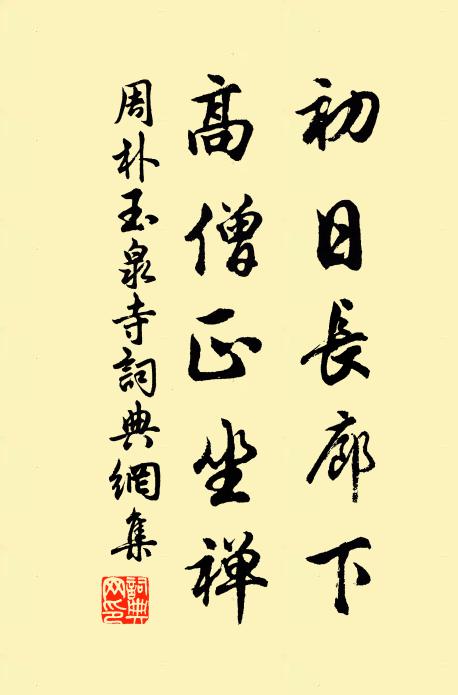 初日長廊下
高僧正坐禅
周朴玉泉寺詞典網集
詞典网印